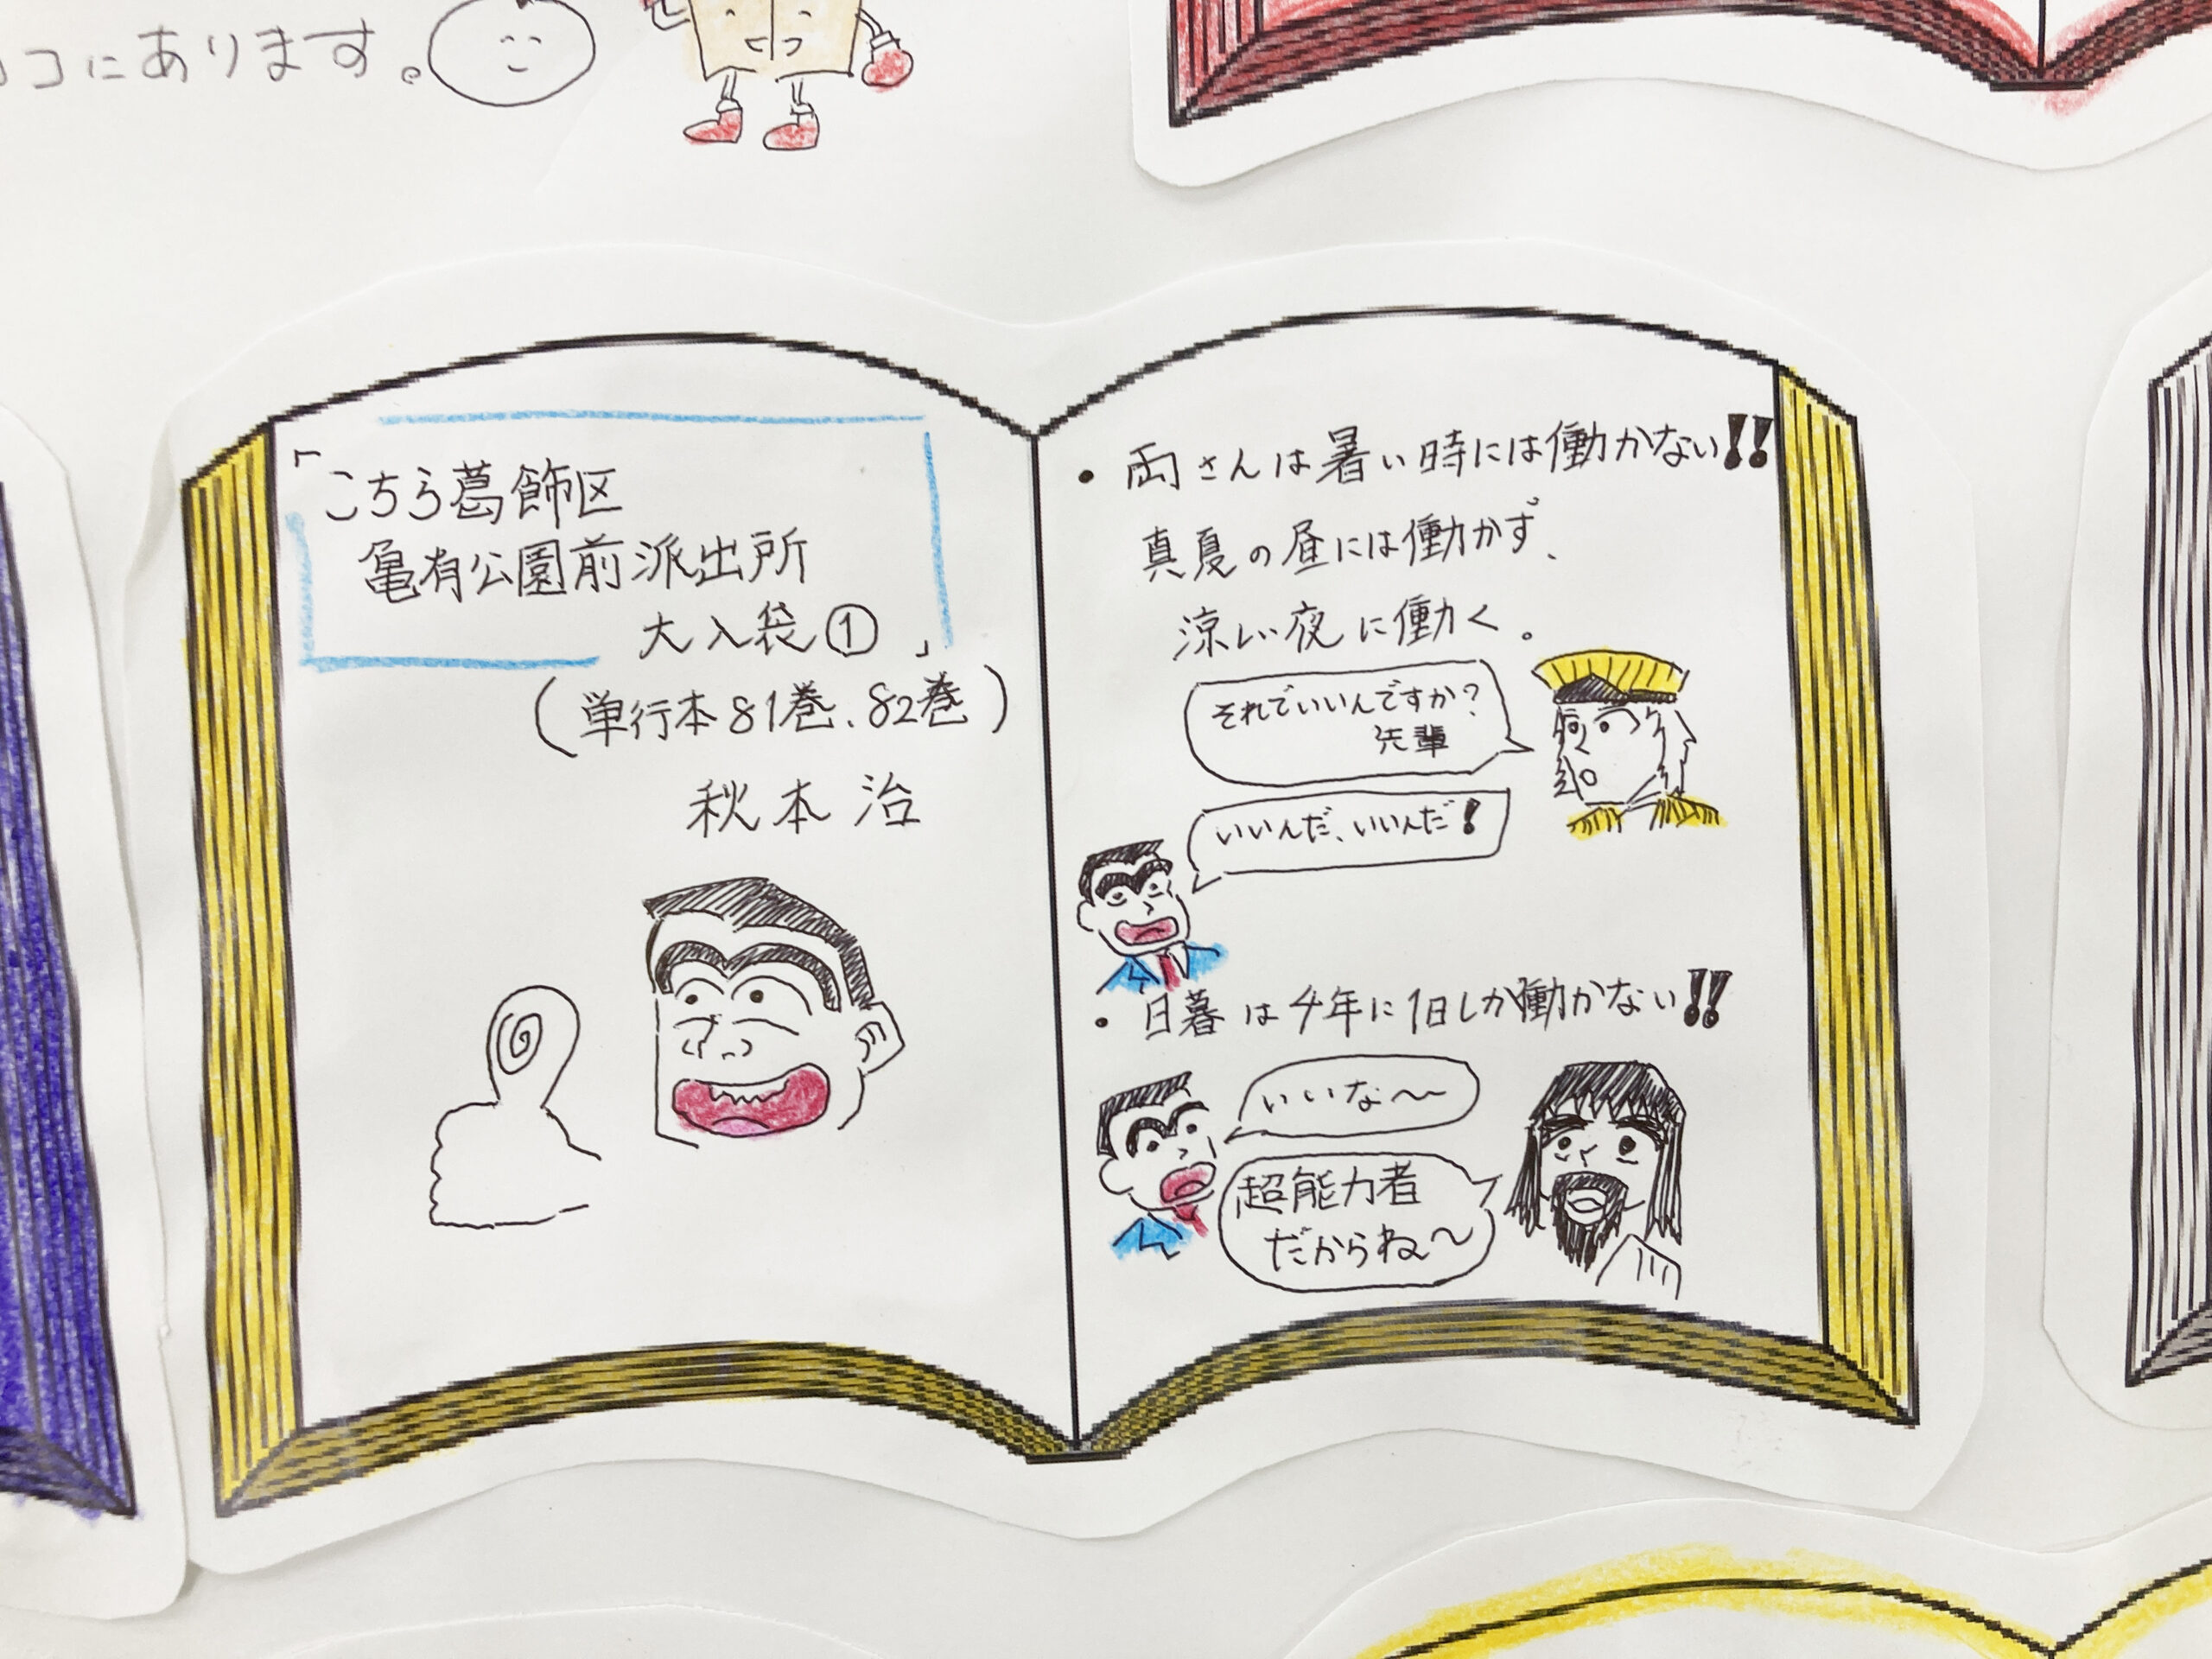 コにあります。
「こちら葛飾区
亀有公園前派出所
大入袋①」
(単行本81巻、82巻)
秋本治
・両さんは暑い時には働かない!!
真夏の昼には働かず、
涼しい夜に働く。
それでいいんですか?
先輩
いいんだ、いいんだ!
・日暮は4年に1日しか働かない!!
いいな〜
超能力者
だからね〜